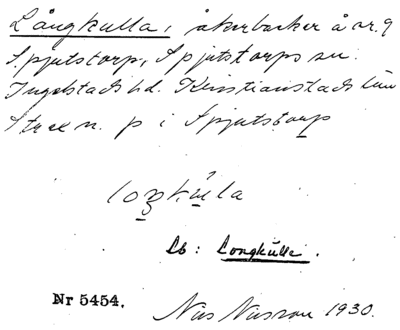 Långkulla, åkerbacker å nr. 9
Spjutstorp, Spjutstorps sn.
Ingelstads hd. Kristianstads län
Strax n. p i Spjutstorp
loŋkúla
Lb: Longkulle.
Nr 5454. Nils Nilsson 1930.